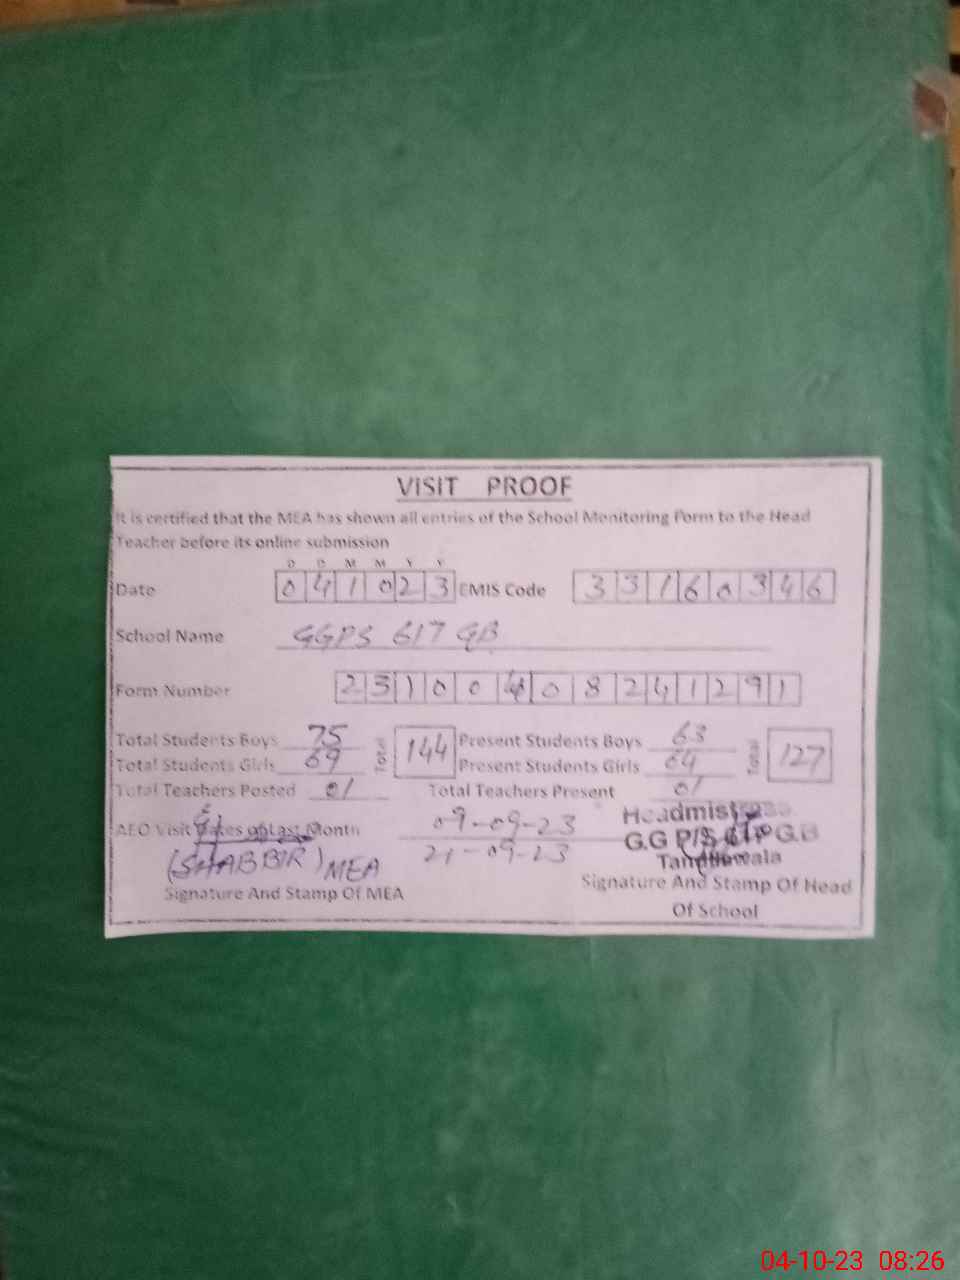 VISIT PROOF
It is certified that the MEA has shown all entries of the School Monitoring Form to the Head
Teacher before its online submission
D D M M Y Y
Date 041023 EMIS Code 33160346
School Name GGPS 617 GB
Form Number 23100408241291
Total Students Boys 75 Total 144 Present Students Boys 63 Total 127
Total Students Girls 69 Present Students Girls 64
Total Teachers Posted 01 Total Teachers Present 01
AEO Visit Dates of Last Month 09-09-23
21-09-23
Headmistress
G.G P/S 617 G.B
Tandliawala
(SHABBIR) MEA
Signature And Stamp Of MEA
Signature And Stamp Of Head
Of School
04-10-23 08:26